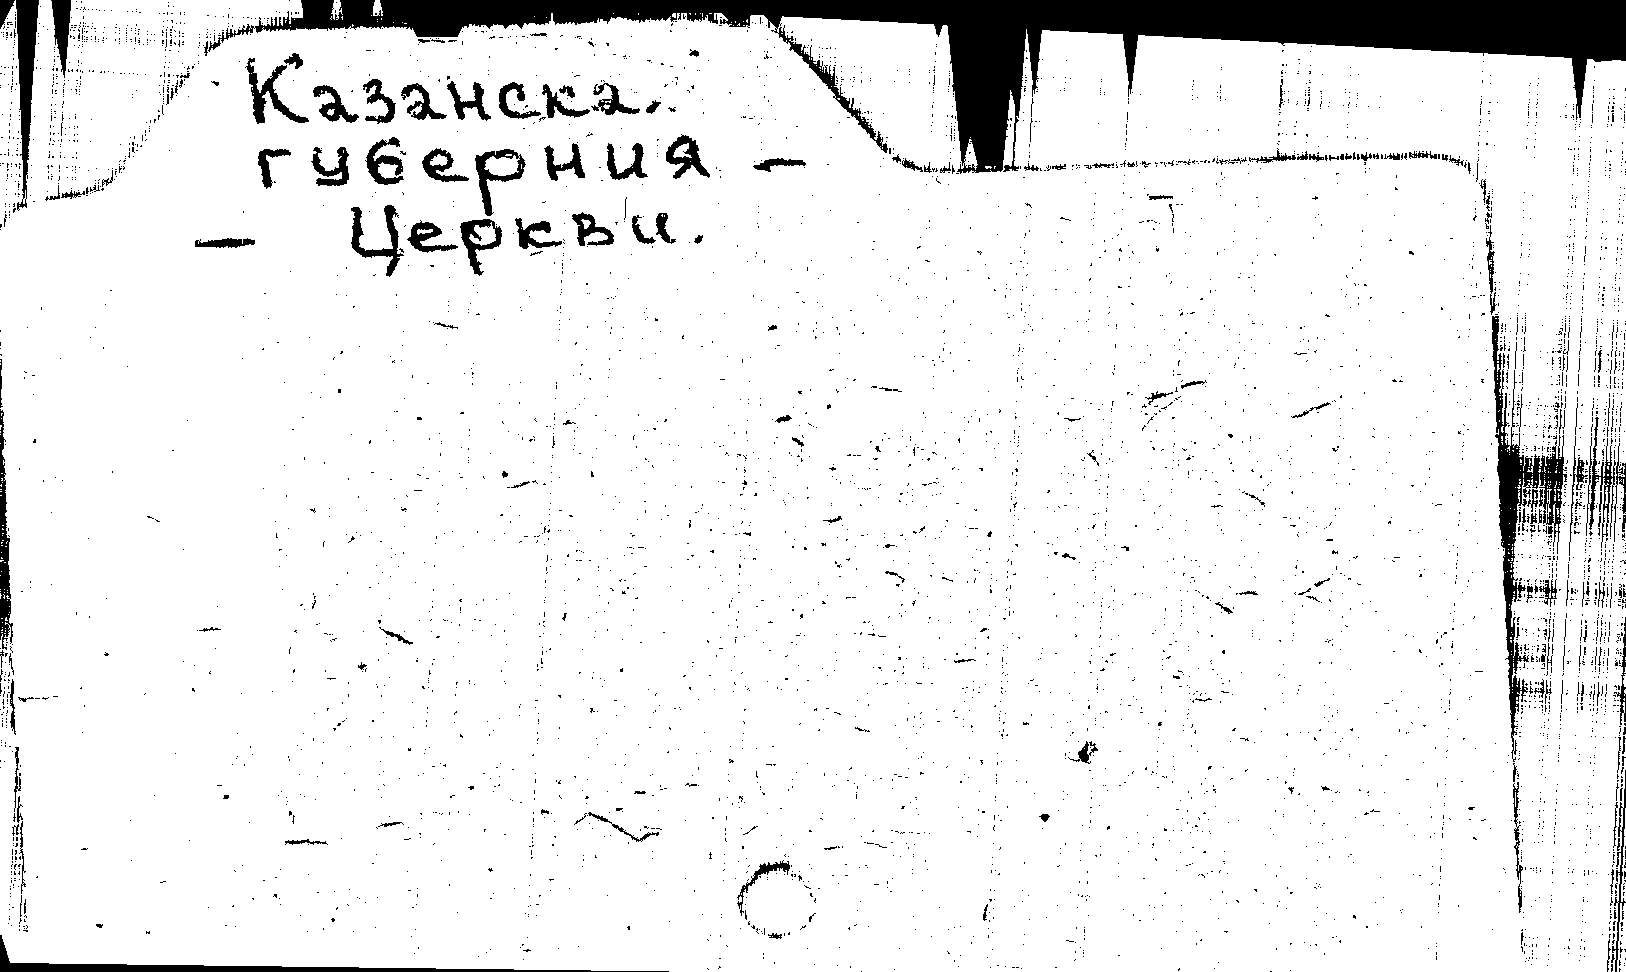 Казанска.
губерния –
– Церкви.